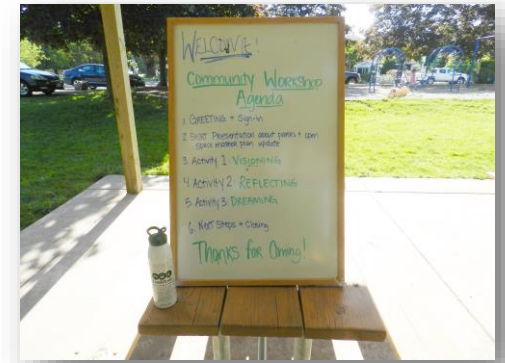 WELCOME!
Community Workshop
Agenda
1. GREETING + Sign-in
2. SHORT Presentation about parks + open
space master plan update
3. Activity 1: VISIONING
4. Activity 2: REFLECTING
5. Activity 3: DREAMING
6. Next Steps + Closing
Thanks for Coming!